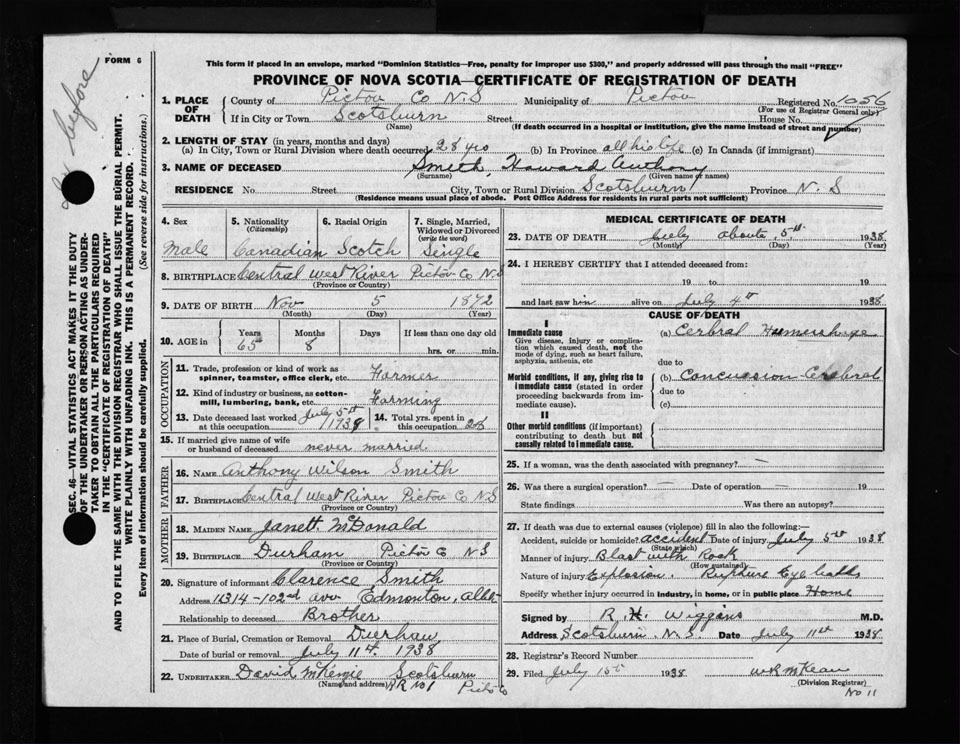 FORM 6
This form if placed in an envelope, marked "Dominion Statistics—Free, penalty for improper use $300," and properly addressed will pass through the mail "FREE"
PROVINCE OF NOVA SCOTIA—CERTIFICATE OF REGISTRATION OF DEATH
before
SEC. 46—VITAL STATISTICS ACT MAKES IT THE DUTY
OF THE UNDERTAKER OR PERSON ACTING AS UNDER-
TAKER TO OBTAIN ALL THE PARTICULARS REQUIRED
IN THE "CERTIFICATE OF REGISTRATION OF DEATH"
AND TO FILE THE SAME WITH THE DIVISION REGISTRAR WHO SHALL ISSUE THE BURIAL PERMIT.
WRITE PLAINLY WITH UNFADING INK. THIS IS A PERMANENT RECORD.
Every item of Information should be carefully supplied. (See reverse side for instructions.)
1. PLACE OF DEATH County of Pictou Co N.S Municipality of Pictou Registered No. 1056
(For use of Registrar General only)
If in City or Town Scotsburn Street House No.
(Name) (If death occurred in a hospital or institution, give the name instead of street and number)
2. LENGTH OF STAY (in years, months and days)
(a) In City, Town or Rural Division where death occurred 28 yrs (b) In Province all his life (c) In Canada (if immigrant)
3. NAME OF DECEASED Smith, Howard Anthony
(Surname) (Given name or names)
RESIDENCE No Street City, Town or Rural Division Scotsburn Province N.S
(Residence means usual place of abode. Post Office Address for residents in rural parts not sufficient)
4. Sex 5. Nationality (Citizenship) 6. Racial Origin 7. Single, Married, Widowed or Divorced (write the word)
Male Canadian Scotch Single
8. BIRTHPLACE Central West River Pictou Co N.S
(Province or Country)
9. DATE OF BIRTH Nov 5 1872
(Month) (Day) (Year)
10. AGE in Years Months Days If less than one day old
65 8 hrs. or min.
OCCUPATION
11. Trade, profession or kind of work as spinner, teamster, office clerk, etc. Farmer
12. Kind of industry or business, as cotton-mill, lumbering, bank, etc. Farming
13. Date deceased last worked at this occupation July 5th 1938 14. Total yrs. spent in this occupation
15. If married give name of wife or husband of deceased never married
FATHER
16. NAME Anthony Wilson Smith
17. BIRTHPLACE Central West River Pictou Co N.S
(Province or Country)
MOTHER
18. MAIDEN NAME Janett McDonald
19. BIRTHPLACE Durham Pictou Co N S
(Province or Country)
20. Signature of informant Clarence Smith
Address 11314-102nd ave Edmonton, Alba
Relationship to deceased Brother
21. Place of Burial, Cremation or Removal Durham
Date of burial or removal July 11th 1938
22. UNDERTAKER David McKenzie Scotsburn
(Name and address) RR No 1 Pictou Co
MEDICAL CERTIFICATE OF DEATH
23. DATE OF DEATH July about 5th 1938
(Month) (Day) (Year)
24. I HEREBY CERTIFY that I attended deceased from:
19 to 19
and last saw him alive on July 4th 1938
CAUSE OF DEATH
I
Immediate cause (a) Cerbral Hemorrhage
Give disease, injury or complication which caused death, not the mode of dying, such as heart failure, asphyxia, asthenia, etc
due to
Morbid conditions, if any, giving rise to immediate cause (stated in order proceeding backwards from immediate cause). (b) Concussion Cerebral
due to
(c)
II
Other morbid conditions (if important) contributing to death but not causally related to immediate cause.
25. If a woman, was the death associated with pregnancy? —
26. Was there a surgical operation? — Date of operation — 19
State findings Was there an autopsy?
27. If death was due to external causes (violence) fill in also the following:—
Accident, suicide or homicide? accident Date of injury July 5th 1938
(State which)
Manner of injury Blast with Rock
(How sustained)
Nature of injury Explosion. Rupture Eye balls
Specify whether injury occurred in industry, in home, or in public place Home
Signed by R. H. Wiggins M.D.
Address Scotsburn. N.S. Date July 11th 1938
28. Registrar's Record Number
29. Filed July 1938 W R McKean
(Division Registrar)
No 11